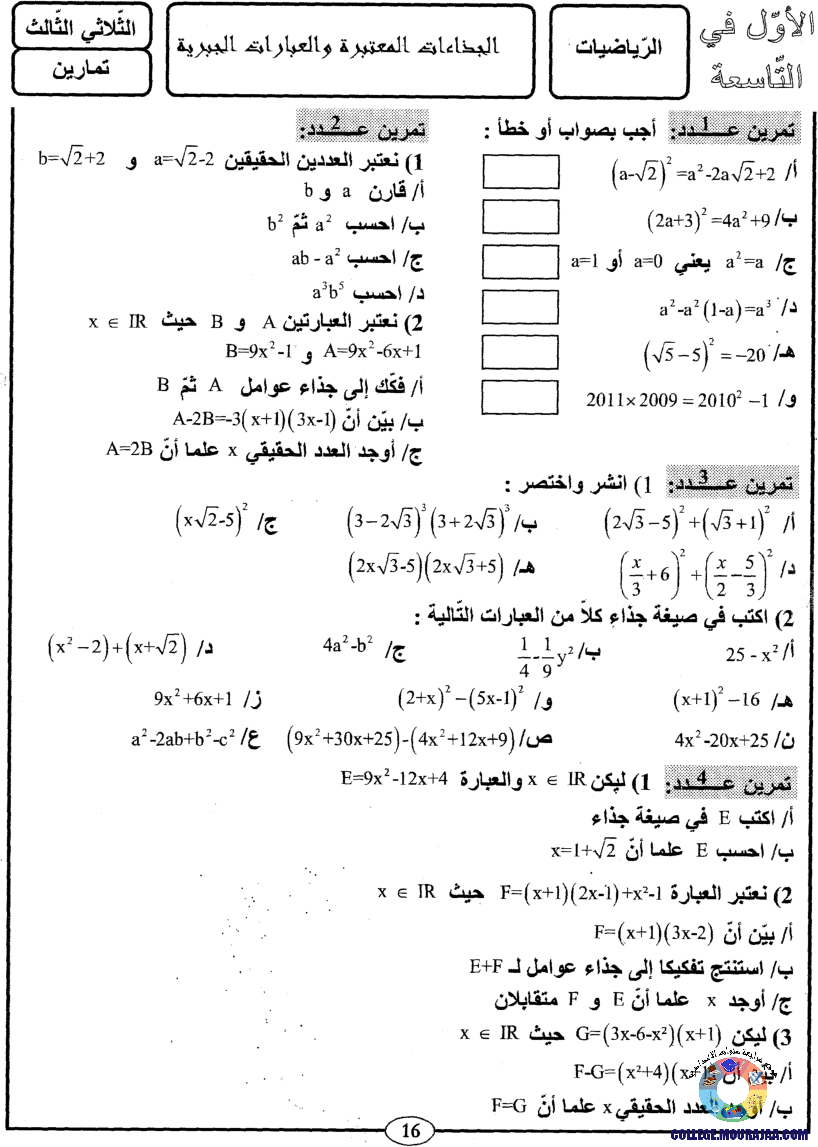 الأوّل في التّاسعة
الرّياضيات
الجذاءات المعتبرة والعبارات الجبرية
الثّلاثي الثّالث
تمارين
تمرين عـــدد 1: أجب بصواب أو خطأ :
أ/ (a-√2)²=a²-2a√2+2
ب/ (2a+3)²=4a²+9
ج/ a²=a يعني a=0 أو a=1
د/ a²-a²(1-a)=a³
هـ/ (√5-5)²=-20
و/ 2011×2009=2010²-1
تمرين عـــدد 2:
1) نعتبر العددين الحقيقين a=√2-2 و b=√2+2
أ/ قارن a و b
ب/ احسب a² ثمّ b²
ج/ احسب ab - a²
د/ احسب a³b⁵
2) نعتبر العبارتين A و B حيث x ∈ IR
A=9x²-6x+1 و B=9x²-1
أ/ فكّك إلى جذاء عوامل A ثمّ B
ب/ بيّن أنّ A-2B=-3(x+1)(3x-1)
ج/ أوجد العدد الحقيقي x علما أنّ A=2B
تمرين عـــدد 3: 1) انشر واختصر :
أ/ (2√3-5)²+(√3+1)² ب/ (3-2√3)³(3+2√3)³ ج/ (x√2-5)²
د/ (x/3+6)²+(x/2-5/3)² هـ/ (2x√3-5)(2x√3+5)
2) اكتب في صيغة جذاء كلاّ من العبارات التّالية :
أ/ 25 - x² ب/ 1/4-1/9y² ج/ 4a²-b² د/ (x²-2)+(x+√2)
هـ/ (x+1)²-16 و/ (2+x)²-(5x-1)² ز/ 9x²+6x+1
ن/ 4x²-20x+25 ص/ (9x²+30x+25)-(4x²+12x+9) ع/ a²-2ab+b²-c²
تمرين عـــدد 4: 1) ليكن x ∈ IR والعبارة E=9x²-12x+4
أ/ اكتب E في صيغة جذاء
ب/ احسب E علما أنّ x=1+√2
2) نعتبر العبارة F=(x+1)(2x-1)+x²-1 حيث x ∈ IR
أ/ بيّن أنّ F=(x+1)(3x-2)
ب/ استنتج تفكيكا إلى جذاء عوامل لـ E+F
ج/ أوجد x علما أنّ E و F متقابلان
3) ليكن G=(3x-6-x²)(x+1) حيث x ∈ IR
أ/ بيّن أنّ F-G=(x²+4)(x
ب/ أوجد العدد الحقيقي x علما أنّ F=G
16
COLLEGE.MOURAJAA.COM